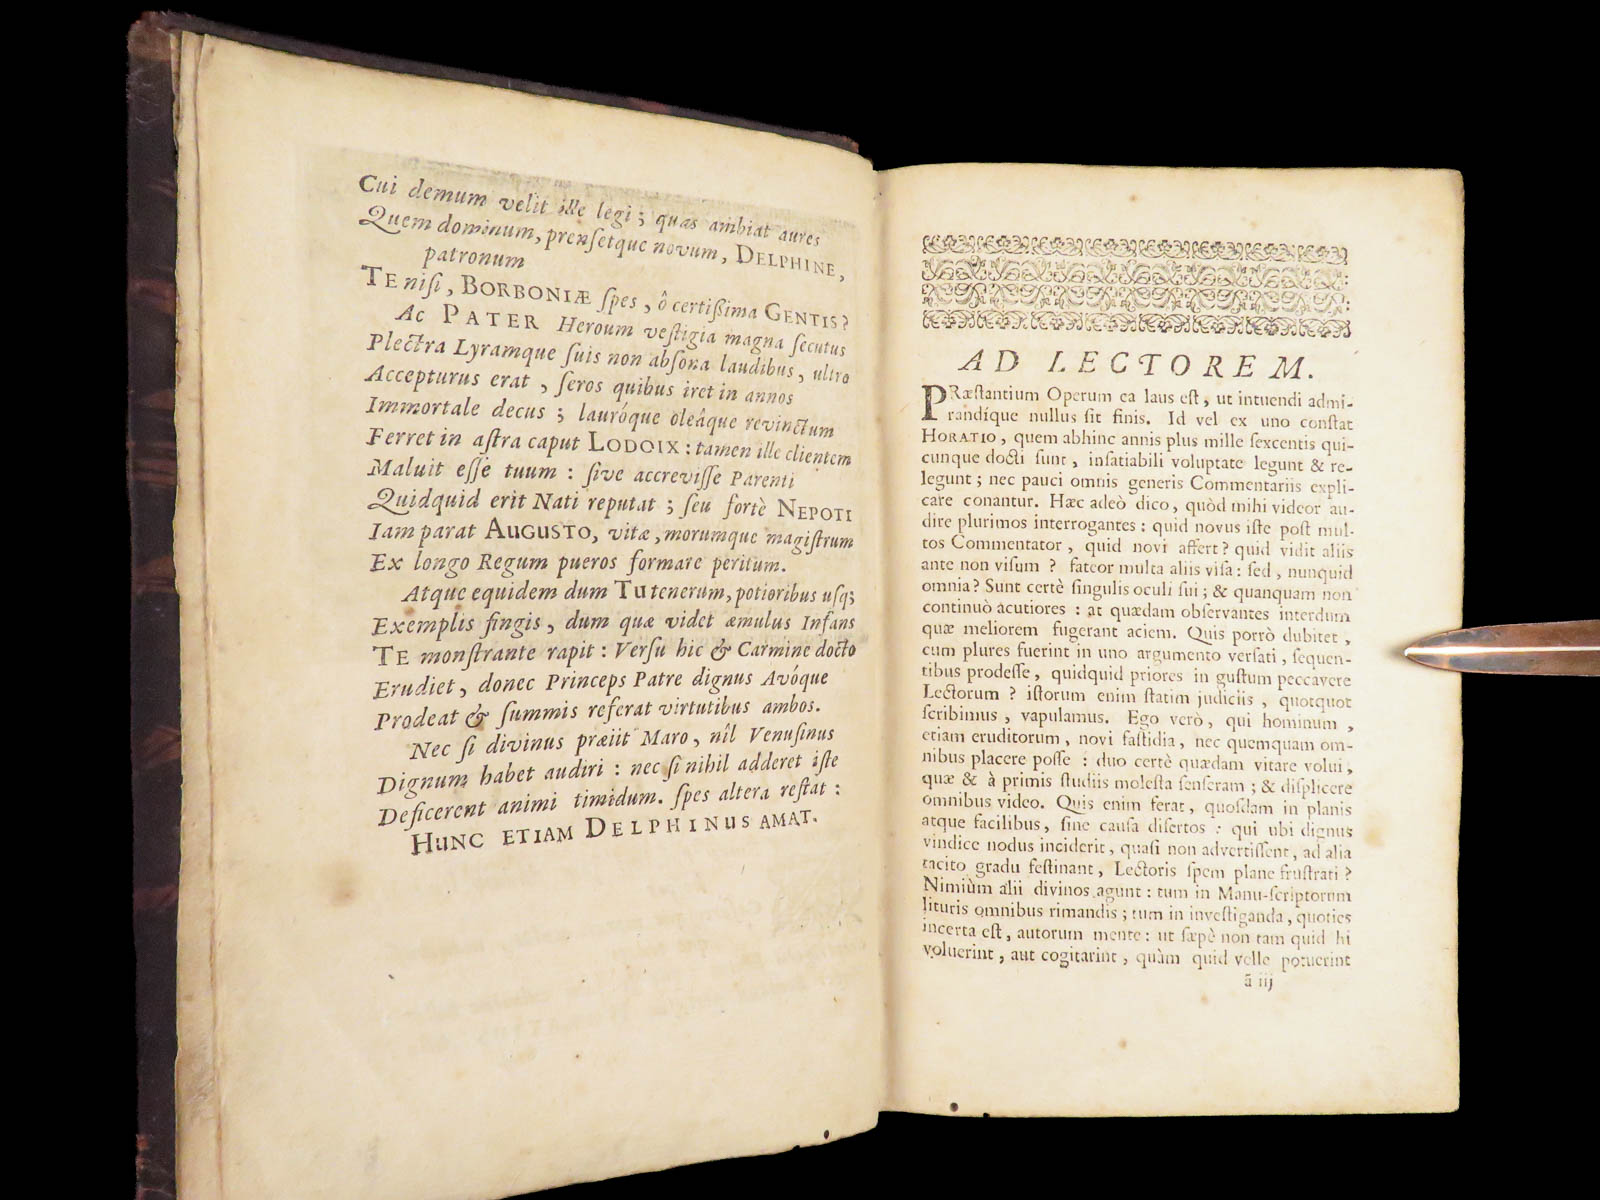 Cui demum velit ille legi ; quas ambiat aures
Quem dominum, prenſetque novum, DELPHINE,
patronum
TE niſi, BORBONIÆ ſpes, ô certiſſima GENTIS?
Ac PATER Heroum veſtigia magna ſecutus
Plectra Lyramque ſuis non abſona laudibus, ultro
Accepturus erat, ſeros quibus iret in annos
Immortale decus ; lauróque oleâque revinctum
Ferret in aſtra caput LODOIX : tamen ille clientem
Maluit eſſe tuum : ſive accreviſſe Parenti
Quidquid erit Nati reputat ; ſeu fortè NEPOTI
Iam parat AUGUSTO, vitæ, morumque magiſtrum
Ex longo Regum pueros formare peritum.
Atque equidem dum TU tenerum, potioribus uſq;
Exemplis fingis, dum quæ videt æmulus Infans
TE monſtrante rapit : Verſu hic & Carmine docto
Erudiet, donec Princeps Patre dignus Avóque
Prodeat & ſummis referat virtutibus ambos.
Nec ſi divinus præiit Maro, nîl Venuſinus
Dignum habet audiri : nec ſi nihil adderet iſte
Deficerent animi timidum. ſpes altera reſtat :
HUNC ETIAM DELPHINUS AMAT.
AD LECTOREM.
PRæſtantium Operum ea laus eſt, ut intuendi admi-
randíque nullus ſit finis. Id vel ex uno conſtat
HORATIO, quem abhinc annis plus mille ſexcentis qui-
cunque docti ſunt, inſatiabili voluptate legunt & re-
legunt ; nec pauci omnis generis Commentariis expli-
care conantur. Hæc adeò dico, quòd mihi videor au-
dire plurimos interrogantes : quid novus iſte poſt mul-
tos Commentator, quid novi affert ? quid vidit aliis
ante non viſum ? fateor multa aliis viſa : ſed, nunquid
omnia ? Sunt certè ſingulis oculi ſui ; & quanquam non
continuò acutiores : at quædam obſervantes interdum
quæ meliorem fugerant aciem. Quis porrò dubitet,
cum plures fuerint in uno argumento verſati, ſequen-
tibus prodeſſe, quidquid priores in guſtum peccavere
Lectorum ? iſtorum enim ſtatim judiciis, quotquot
ſcribimus, vapulamus. Ego verò, qui hominum,
etiam eruditorum, novi faſtidia, nec quemquam om-
nibus placere poſſe : duo certè quædam vitare volui,
quæ & à primis ſtudiis moleſta ſenſeram ; & diſplicere
omnibus video. Quis enim ferat, quoſdam in planis
atque facilibus, ſine cauſa diſertos : qui ubi dignus
vindice nodus inciderit, quaſi non advertiſſent, ad alia
tacito gradu feſtinant, Lectoris ſpem plane fruſtrati ?
Nimiùm alii divinos agunt : tum in Manu-ſcriptorum
lituris omnibus rimandis ; tum in inveſtiganda, quoties
incerta eſt, autorum mente : ut ſæpè non tam quid hi
voluerint, aut cogitarint, quàm quid velle potuerint
ã iij